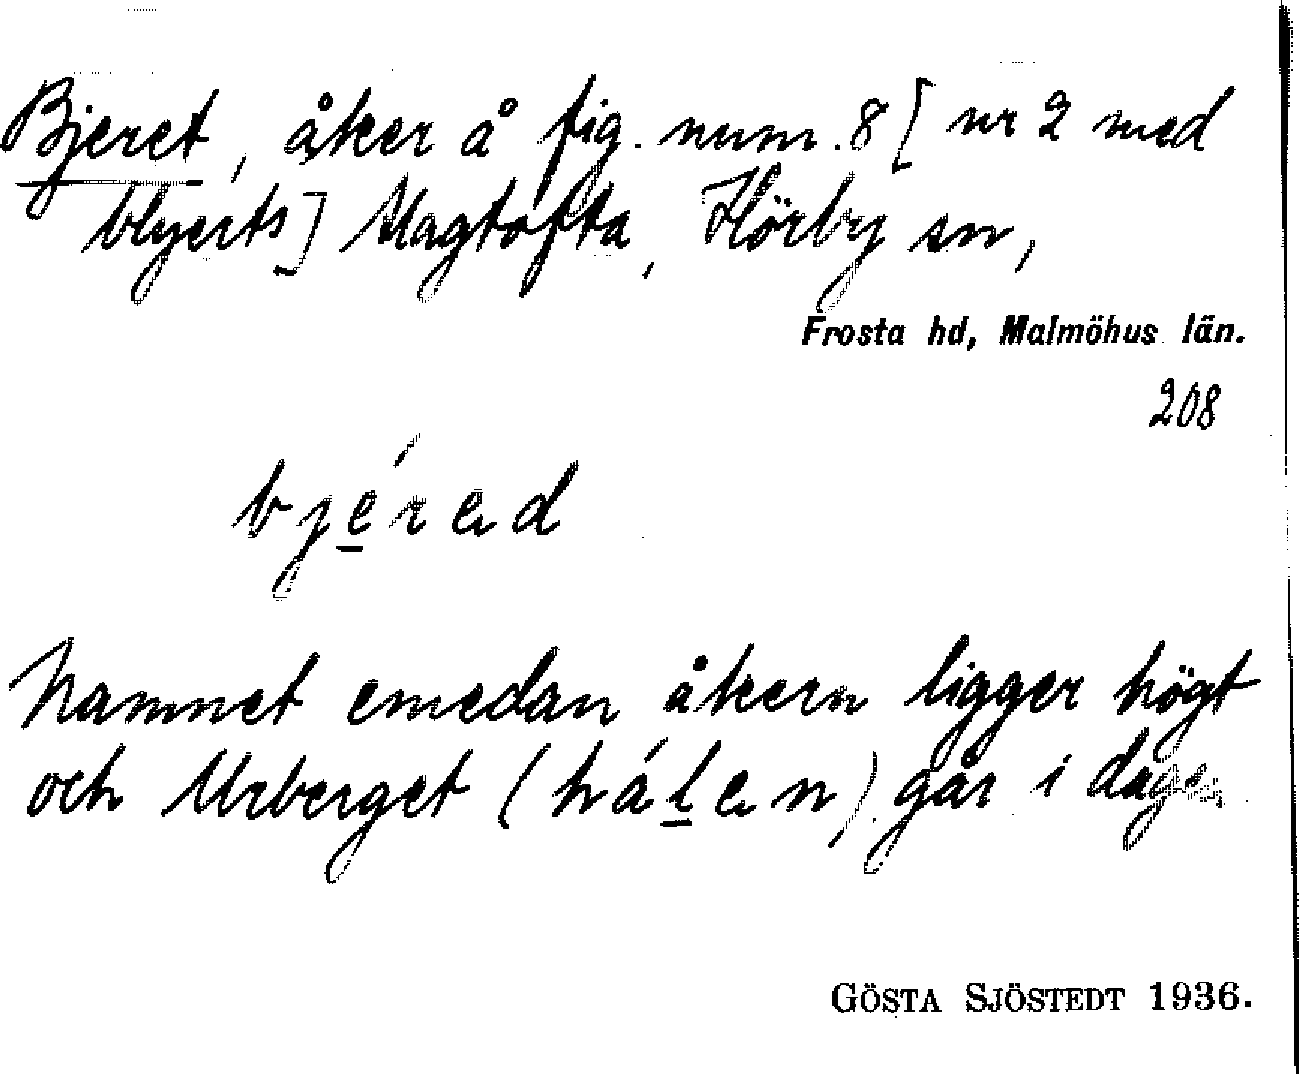 Bjeret, åker å fig. num. 8 [nr 2 med
blyerts] Magtofta, Hörby sn,
Frosta hd, Malmöhus län.
208
bjéred
Namnet emedan åkern ligger högt
och Urberget (hálen) går i dagen
GÖSTA SJÖSTEDT 1936.